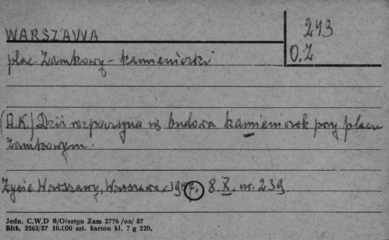 WARSZAWA
243
O.Z.
plac Zamkowy - kamieniczki
(A.K.) Dziś rozpoczyna się budowa kamieniczek przy placu
Zamkowym.
Życie Warszawy, Warszawa, 8 X. nr. 239
Jedn. C.W.D 8/Olsztyn Zam 2776/on/ 57
Bltk. 2563/57 10.000 szt. karton kl. 7 g 220.